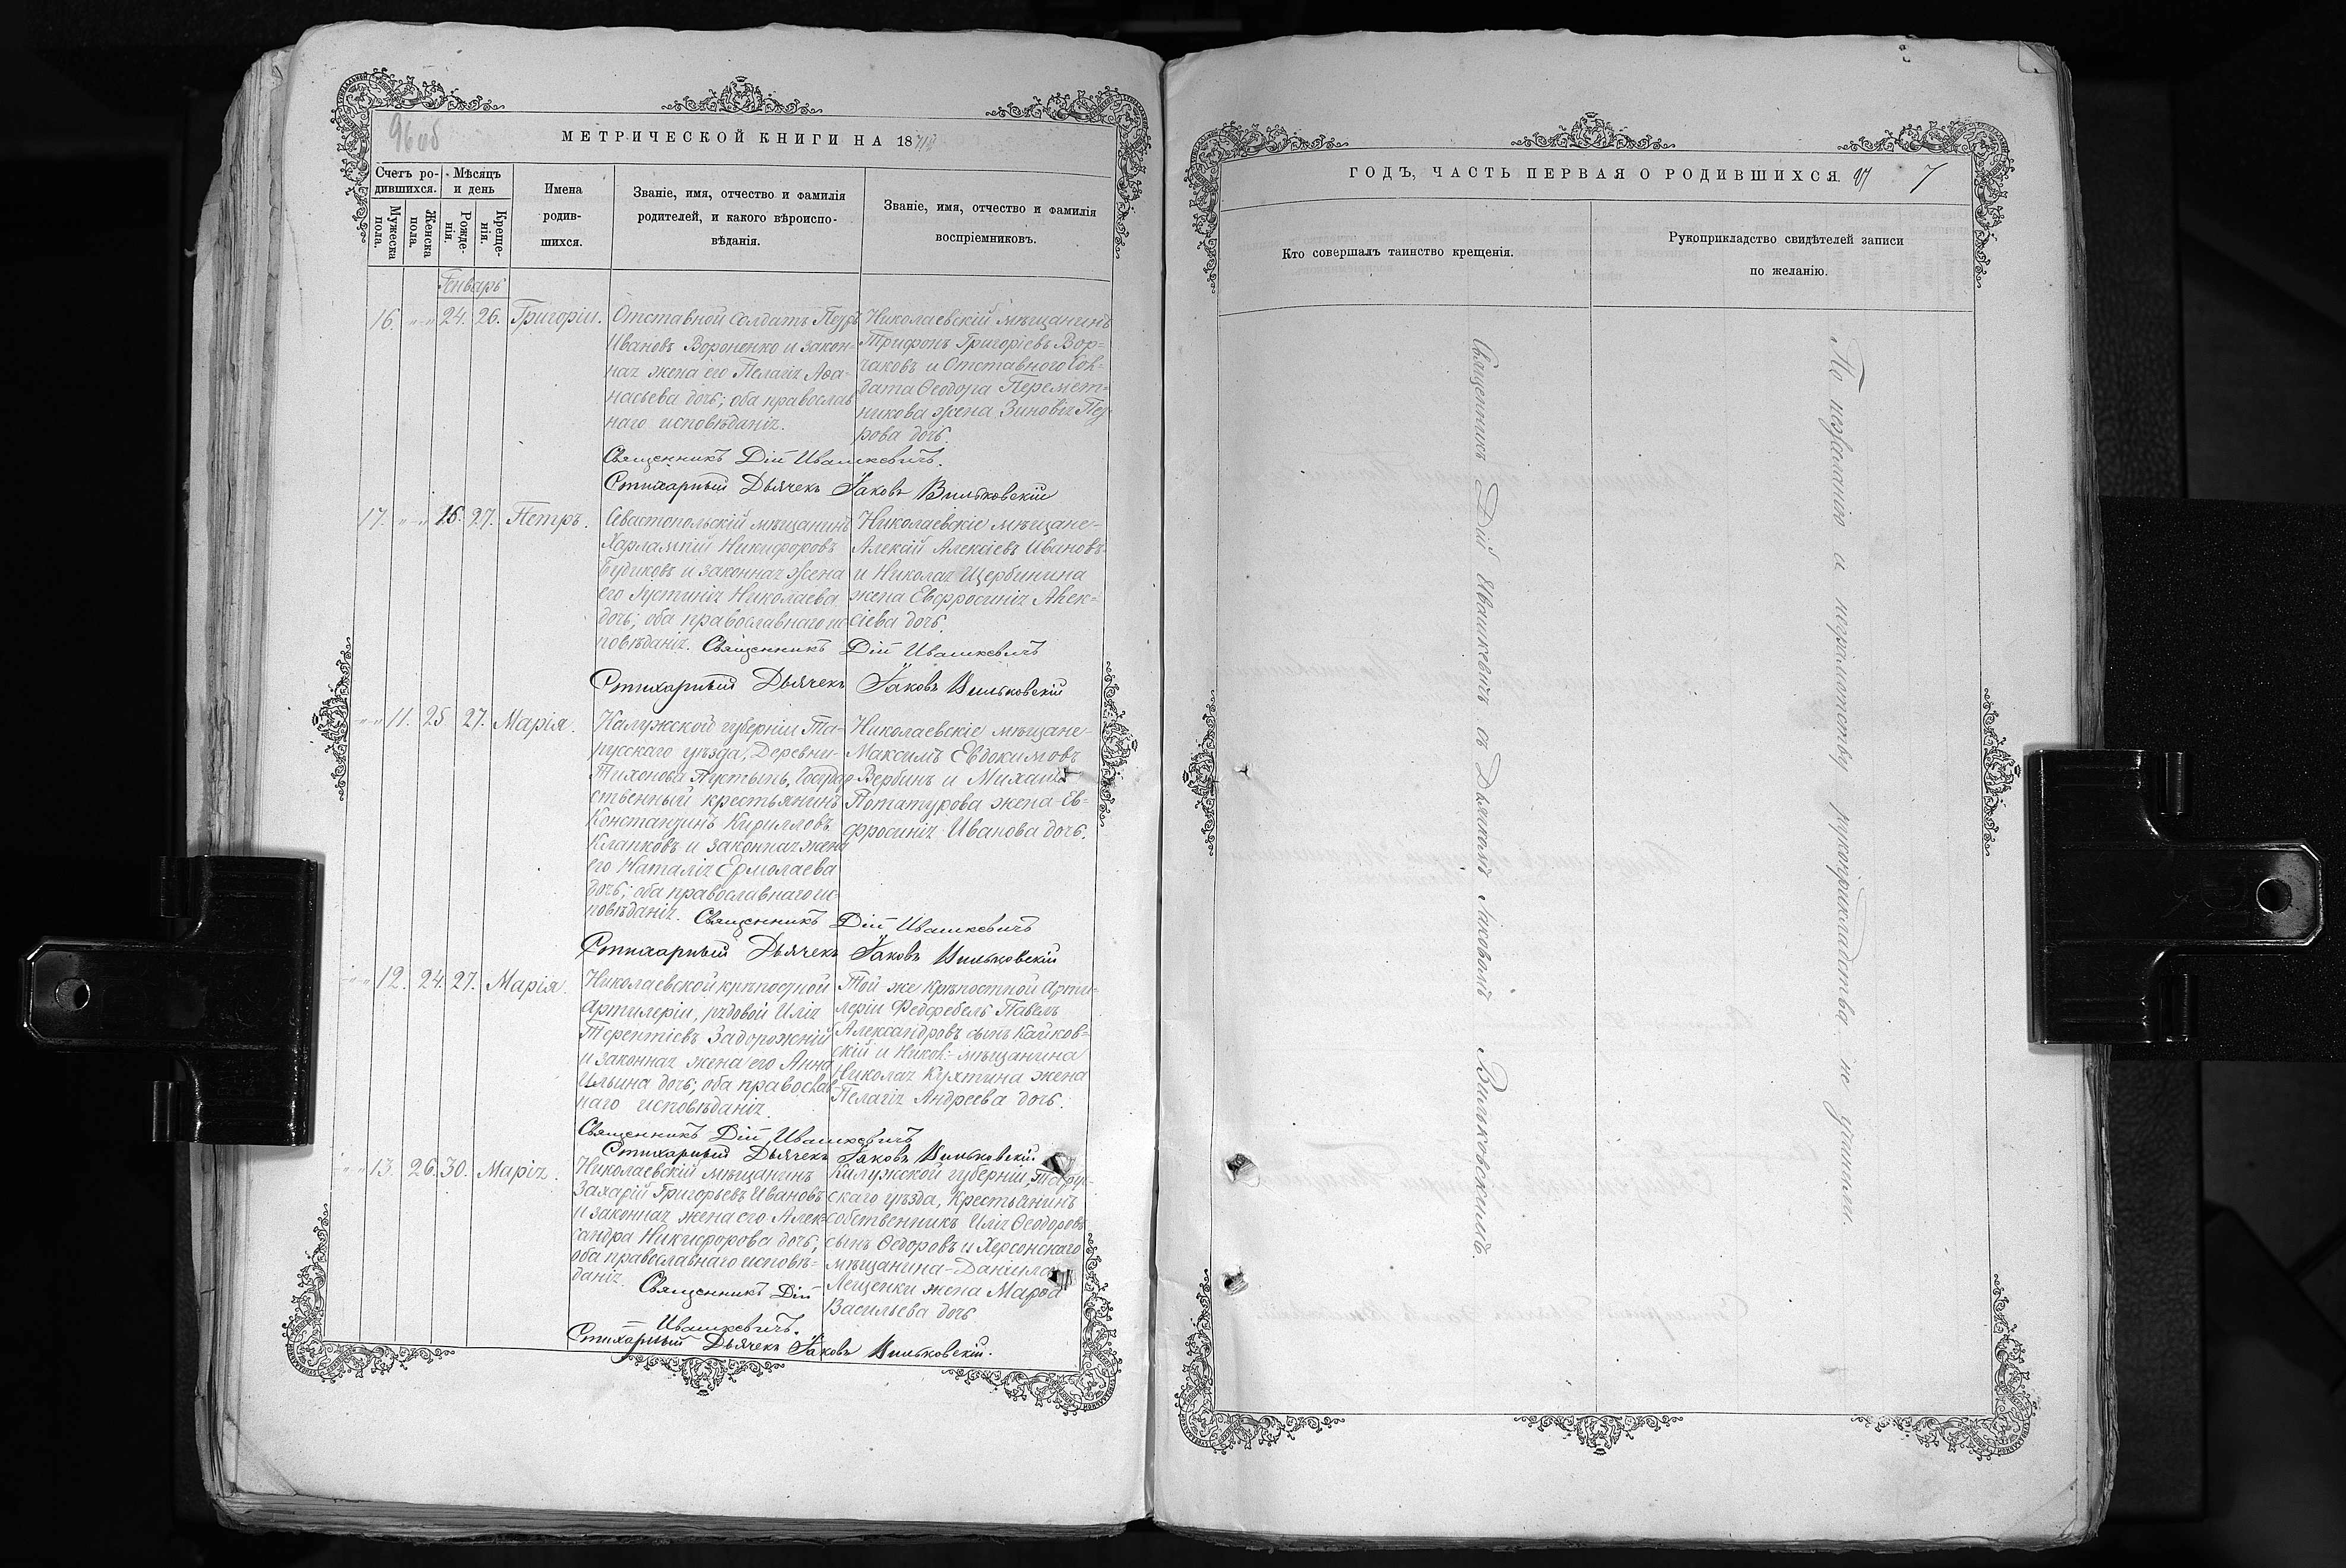 96 об
МЕТРИЧЕСКОЙ КНИГИ НА 187
Счетъ ро-
дившихся.
Мѣсяцъ
и день
Мужеска
пола.
Женска
пола.
Рожде-
нія.
Креще-
нія.
Имена
родив-
шихся.
Званіе, имя, отчество и фамилія
родителей, и какого вѣроиспо-
вѣданія.
Званіе, имя, отчество и фамилія
воспріемниковъ.
Январь
16. „ „ 24. 26. Григорій.
Отставной Солдатъ Петръ
Ивановъ Вороненко и закон-
ная жена его Пелагія Аѳа-
насьева дочь; оба православ
наго исповѣданія.
Николаевскій мѣщанинъ
Трифонъ Григоріевъ Вор-
чаковъ и Отставного Сол-
дата Ѳеодора Перемет-
никова жена Зиновія Пет-
рова дочь.
Священникъ Дій Ивашкевичъ.
Стихарный Дьячекъ Іаковъ Вильковскій
17. „ „ 26. 27. Петръ.
Севастопольскій мѣщанинъ
Харлампій Никифоровъ
Будиковъ и законная жена
его Іустинія Николаева
дочь; оба православнаго ис
повѣданія.
Николаевскіе мѣщане-
Алексій Алексіевъ Ивановъ
и Николая Щербинина
жена Евфросинія Алек-
сіева дочь.
Священникъ Дій Ивашкевичъ
Стихарный Дьячекъ Іаковъ Вильковскій
„ „ 11. 25 27. Марія.
Калужской губерніи Та-
русскаго уѣзда, Деревни-
Тихонова Пустынь, Государ
ственный крестьянинъ
Константинъ Кирилловъ
Клапковъ и законная жена
его Наталія Ермолаева
дочь; оба православнаго ис-
повѣданія.
Николаевскіе мѣщане-
Максимъ Евдокимовъ
Вербинъ и Михаила
Потатурова жена Ев-
фросинія Иванова дочь.
Священникъ Дій Ивашкевичъ
Стихарный Дьячекъ Іаковъ Вильковскій
„ „ 12. 24. 27. Марія.
Николаевской крѣпостной
Артилеріи, рядовой Илія
Терентіевъ Задорожній
и законная жена его Анна
Ильина дочь; оба православ-
наго исповѣданія.
Той же Крѣпостной Арти-
леріи Федфебель Павелъ
Александровъ сынъ Кайков-
скій и Никол: мѣщанина
Николая Кухтина жена
Пелагія Андреева дочь.
Священникъ Дій Ивашкевичъ
Стихарный Дьячекъ Іаковъ Вильковскій
„ „ 13. 26. 30. Марія.
Николаевскій мѣщанинъ
Захарій Григорьевъ Ивановъ
и законная жена его Алек-
сандра Никифорова дочь;
оба православнаго исповѣ-
данія.
Калужской губерніи, Тарус-
скаго уѣзда, Крестьянинъ
собственникъ Илія Ѳеодоровъ
сынъ Ѳедоровъ и Херсонскаго
мѣщанина-Даніила
Лещенки жена Марѳа
Васильева дочь.
Священникъ Дій
Ивашкевичъ.
Стихарный Дьячекъ Іаковъ Вильковскій.
ГОДЪ, ЧАСТЬ ПЕРВАЯ О РОДИВШИХСЯ. 97 7
Кто совершалъ таинство крещенія.
Рукоприкладство свидѣтелей записи
по желанію.
Священникъ Дій Ивашкевичъ съ Дьячкомъ Іаковомъ Вильковскимъ.
По нежеланію и неграмотству рукоприкладства не учинили.